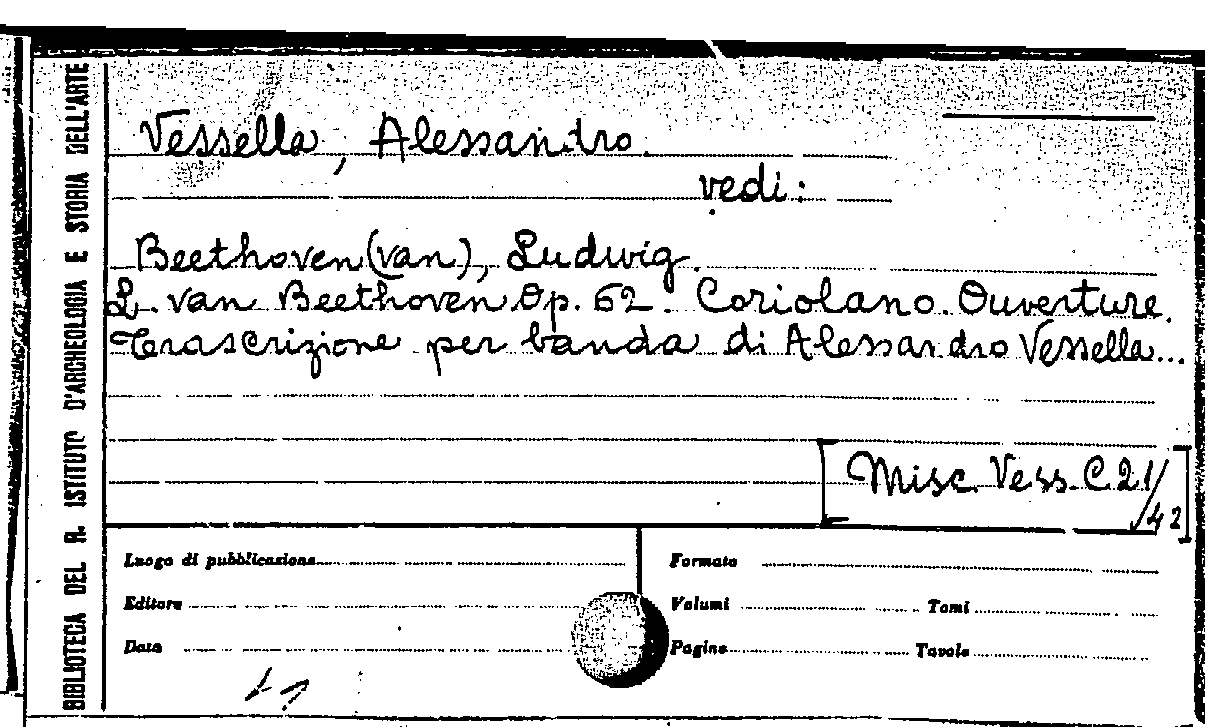 BIBLIOTECA DEL R. ISTITUTO D'ARCHEOLOGIA E STORIA DELL'ARTE
Vessella, Alessandro.
vedi:
Beethoven (van), Ludwig.
L. van Beethoven Op. 62. Coriolano. Ouverture.
Trascrizione per banda di Alessandro Vessella...
[Misc. Vess. C. 21/42]
Luogo di pubblicazione
Formato
Editore
Volumi Tomi
Data
Pagine Tavole